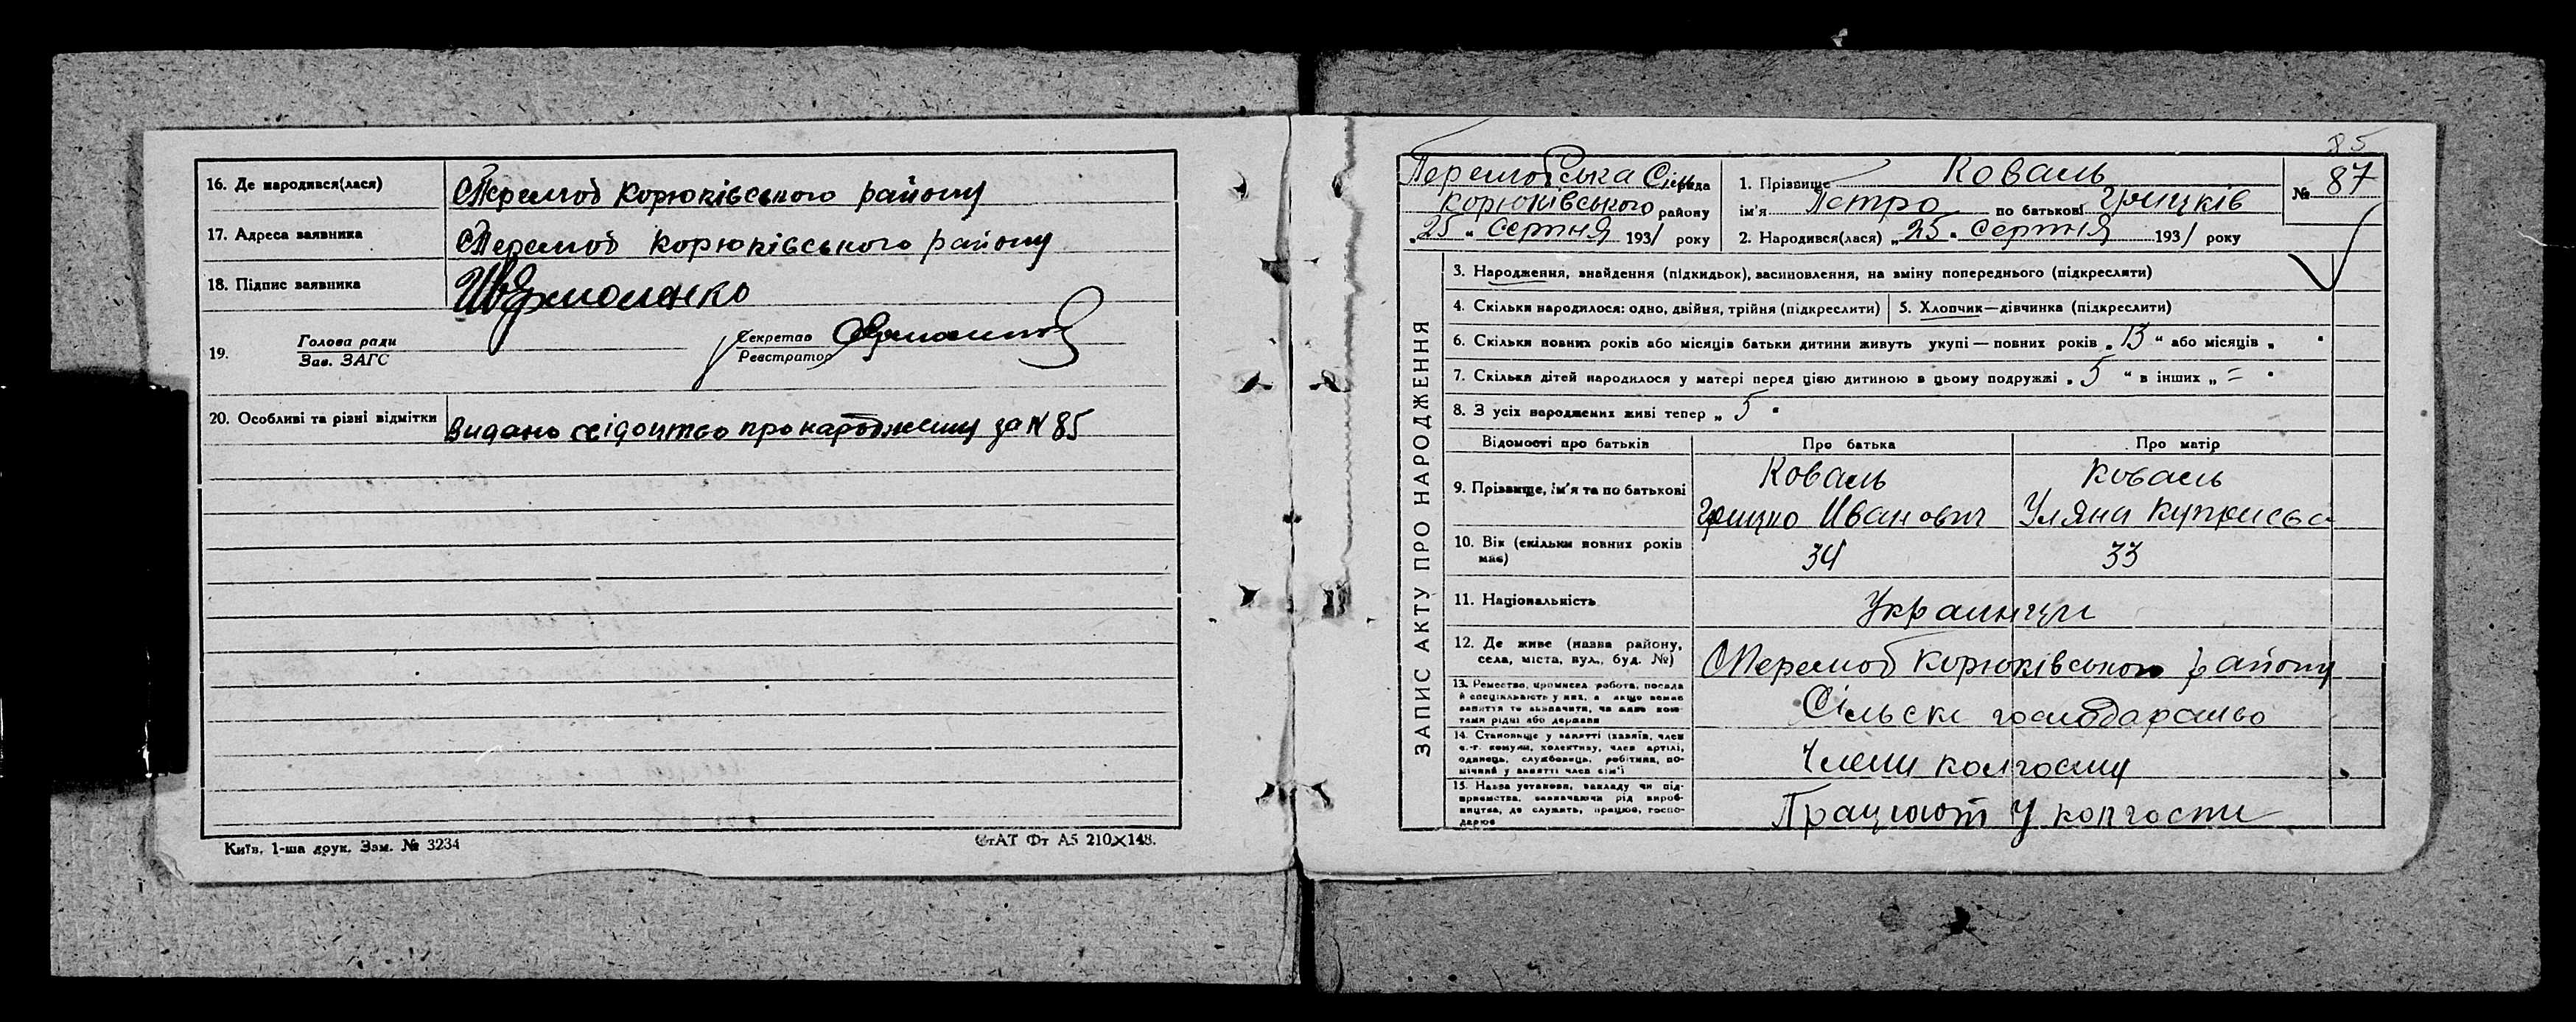 16. Де народився(лася) с Перелюб Корюківського району
17. Адреса заявника с Перелюб Корюківського району
18. Підпис заявника Єрмоленко
19. Голова ради
Зав. ЗАГС
Секретар
Реєстратор
20. Особливі та різні відмітки Видано свідоцтво про народження за № 85
Київ. 1-ша друк. Зам. № 3234
СтАТ Фт А5 210×148.
85
Перелюбська Сільрада
Корюківського району
„25" Серпня 1931 року
1. Прізвище Коваль
ім'я Петро по батькові Грицків
2. Народився(лася) „25" Серпня 1931 року
№ 87
ЗАПИС АКТУ ПРО НАРОДЖЕННЯ
3. Народження, знайдення (підкидьок), васиновлення, на зміну попереднього (підкреслити)
4. Скільки народилося: одно, двійня, трійня (підкреслити)
5. Хлопчик—дівчинка (підкреслити)
6. Скільки повних років або місяців батьки дитини живуть укупі — повних років „13" або місяців „ "
7. Скільки дітей народилося у матері перед цією дитиною в цьому подружжі „5" в інших „="
8. З усіх народжених живі тепер „5"
Відомості про батьків Про батька Про матір
9. Прізвище, ім'я та по батькові Коваль Коваль
Грицко Иванович Уляна Купрієва
10. Вік (скільки повних років має) 34 33
11. Національність Украинци
12. Де живе (назва району,
села, міста, вул., буд. №) с Перелюб Корюківського району
13. Ремество, промисел, робота, посада
й спеціяльність у них, а якщо немає
заняття то зазначити, чи живе кош-
тами рідні або держави
Сільске господарство
14. Становище у занятті (хазяїн, член
с.-г. комуни, колективу, член артілі,
одинець, службовець, робітник, по-
мічний у занятті член сім'ї
Члени колгоспу
15. Назва установи, закладу чи під-
приємства, зазначаючи рід вироб-
ництва, де служить, працює, госпо-
дарює
Працюют у колгоспи